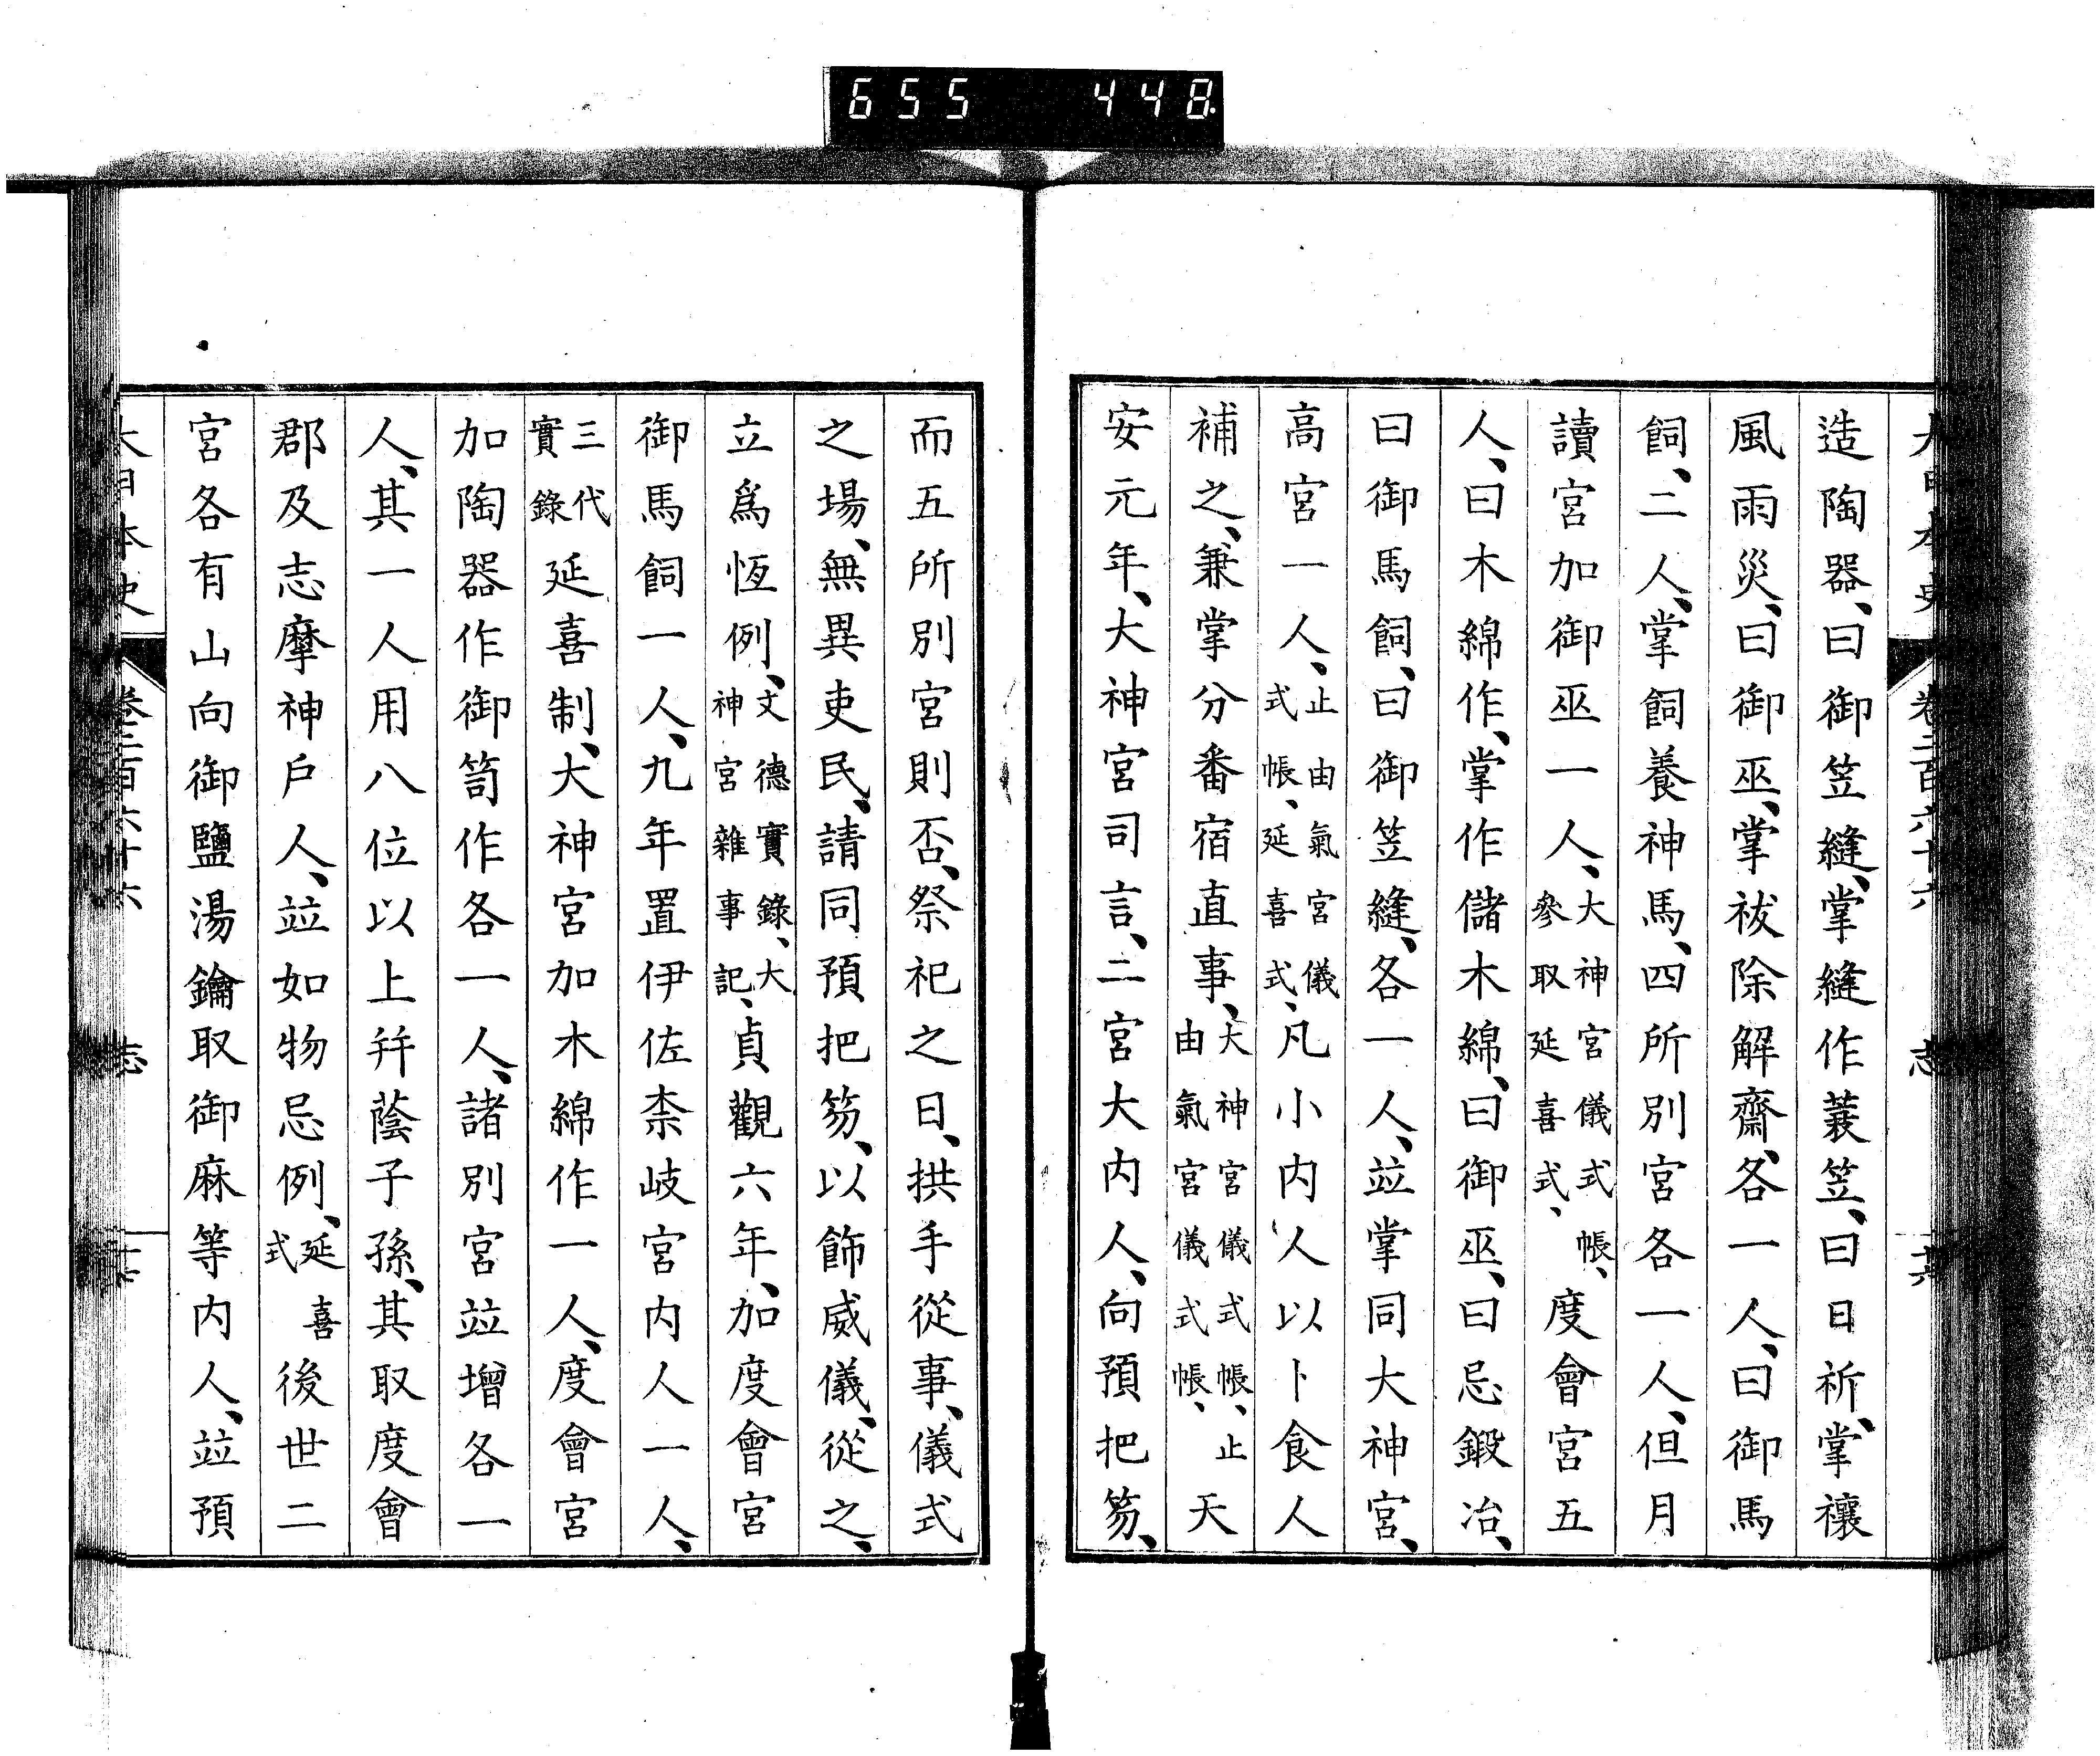 655 448
大日本史 卷二百六十六 志 六
造陶器、曰御笠縫、掌縫作蓑笠、曰日祈、掌禳
風雨災、曰御巫、掌祓除解齋、各一人、曰御馬
飼、二人、掌飼養神馬、四所別宮各一人、但月
讀宮加御巫一人、大神宮儀式帳、參取延喜式、度會宮五
人、曰木綿作、掌作儲木綿、曰御巫、曰忌鍛冶、
曰御馬飼、曰御笠縫、各一人、竝掌同大神宮、
高宮一人、止由氣宮儀式帳、延喜式、凡小內人以卜食人
補之、兼掌分番宿直事、大神宮儀式帳、止由氣宮儀式帳、天
安元年、大神宮司言、二宮大內人、向預把笏、
而五所別宮則否、祭祀之日、拱手從事、儀式
之場、無異吏民、請同預把笏、以飾威儀、從之、
立爲恆例、文德實錄、大神宮雜事記、貞觀六年、加度會宮
御馬飼一人、九年置伊佐柰岐宮內人一人、
三代實錄延喜制、大神宮加木綿作一人、度會宮
加陶器作御笥作各一人、諸別宮竝增各一
人、其一人用八位以上幷蔭子孫、其取度會
郡及志摩神戶人、竝如物忌例、延喜式後世二
宮各有山向御鹽湯鑰取御麻等內人、竝預
大日本史 卷二百六十六 志